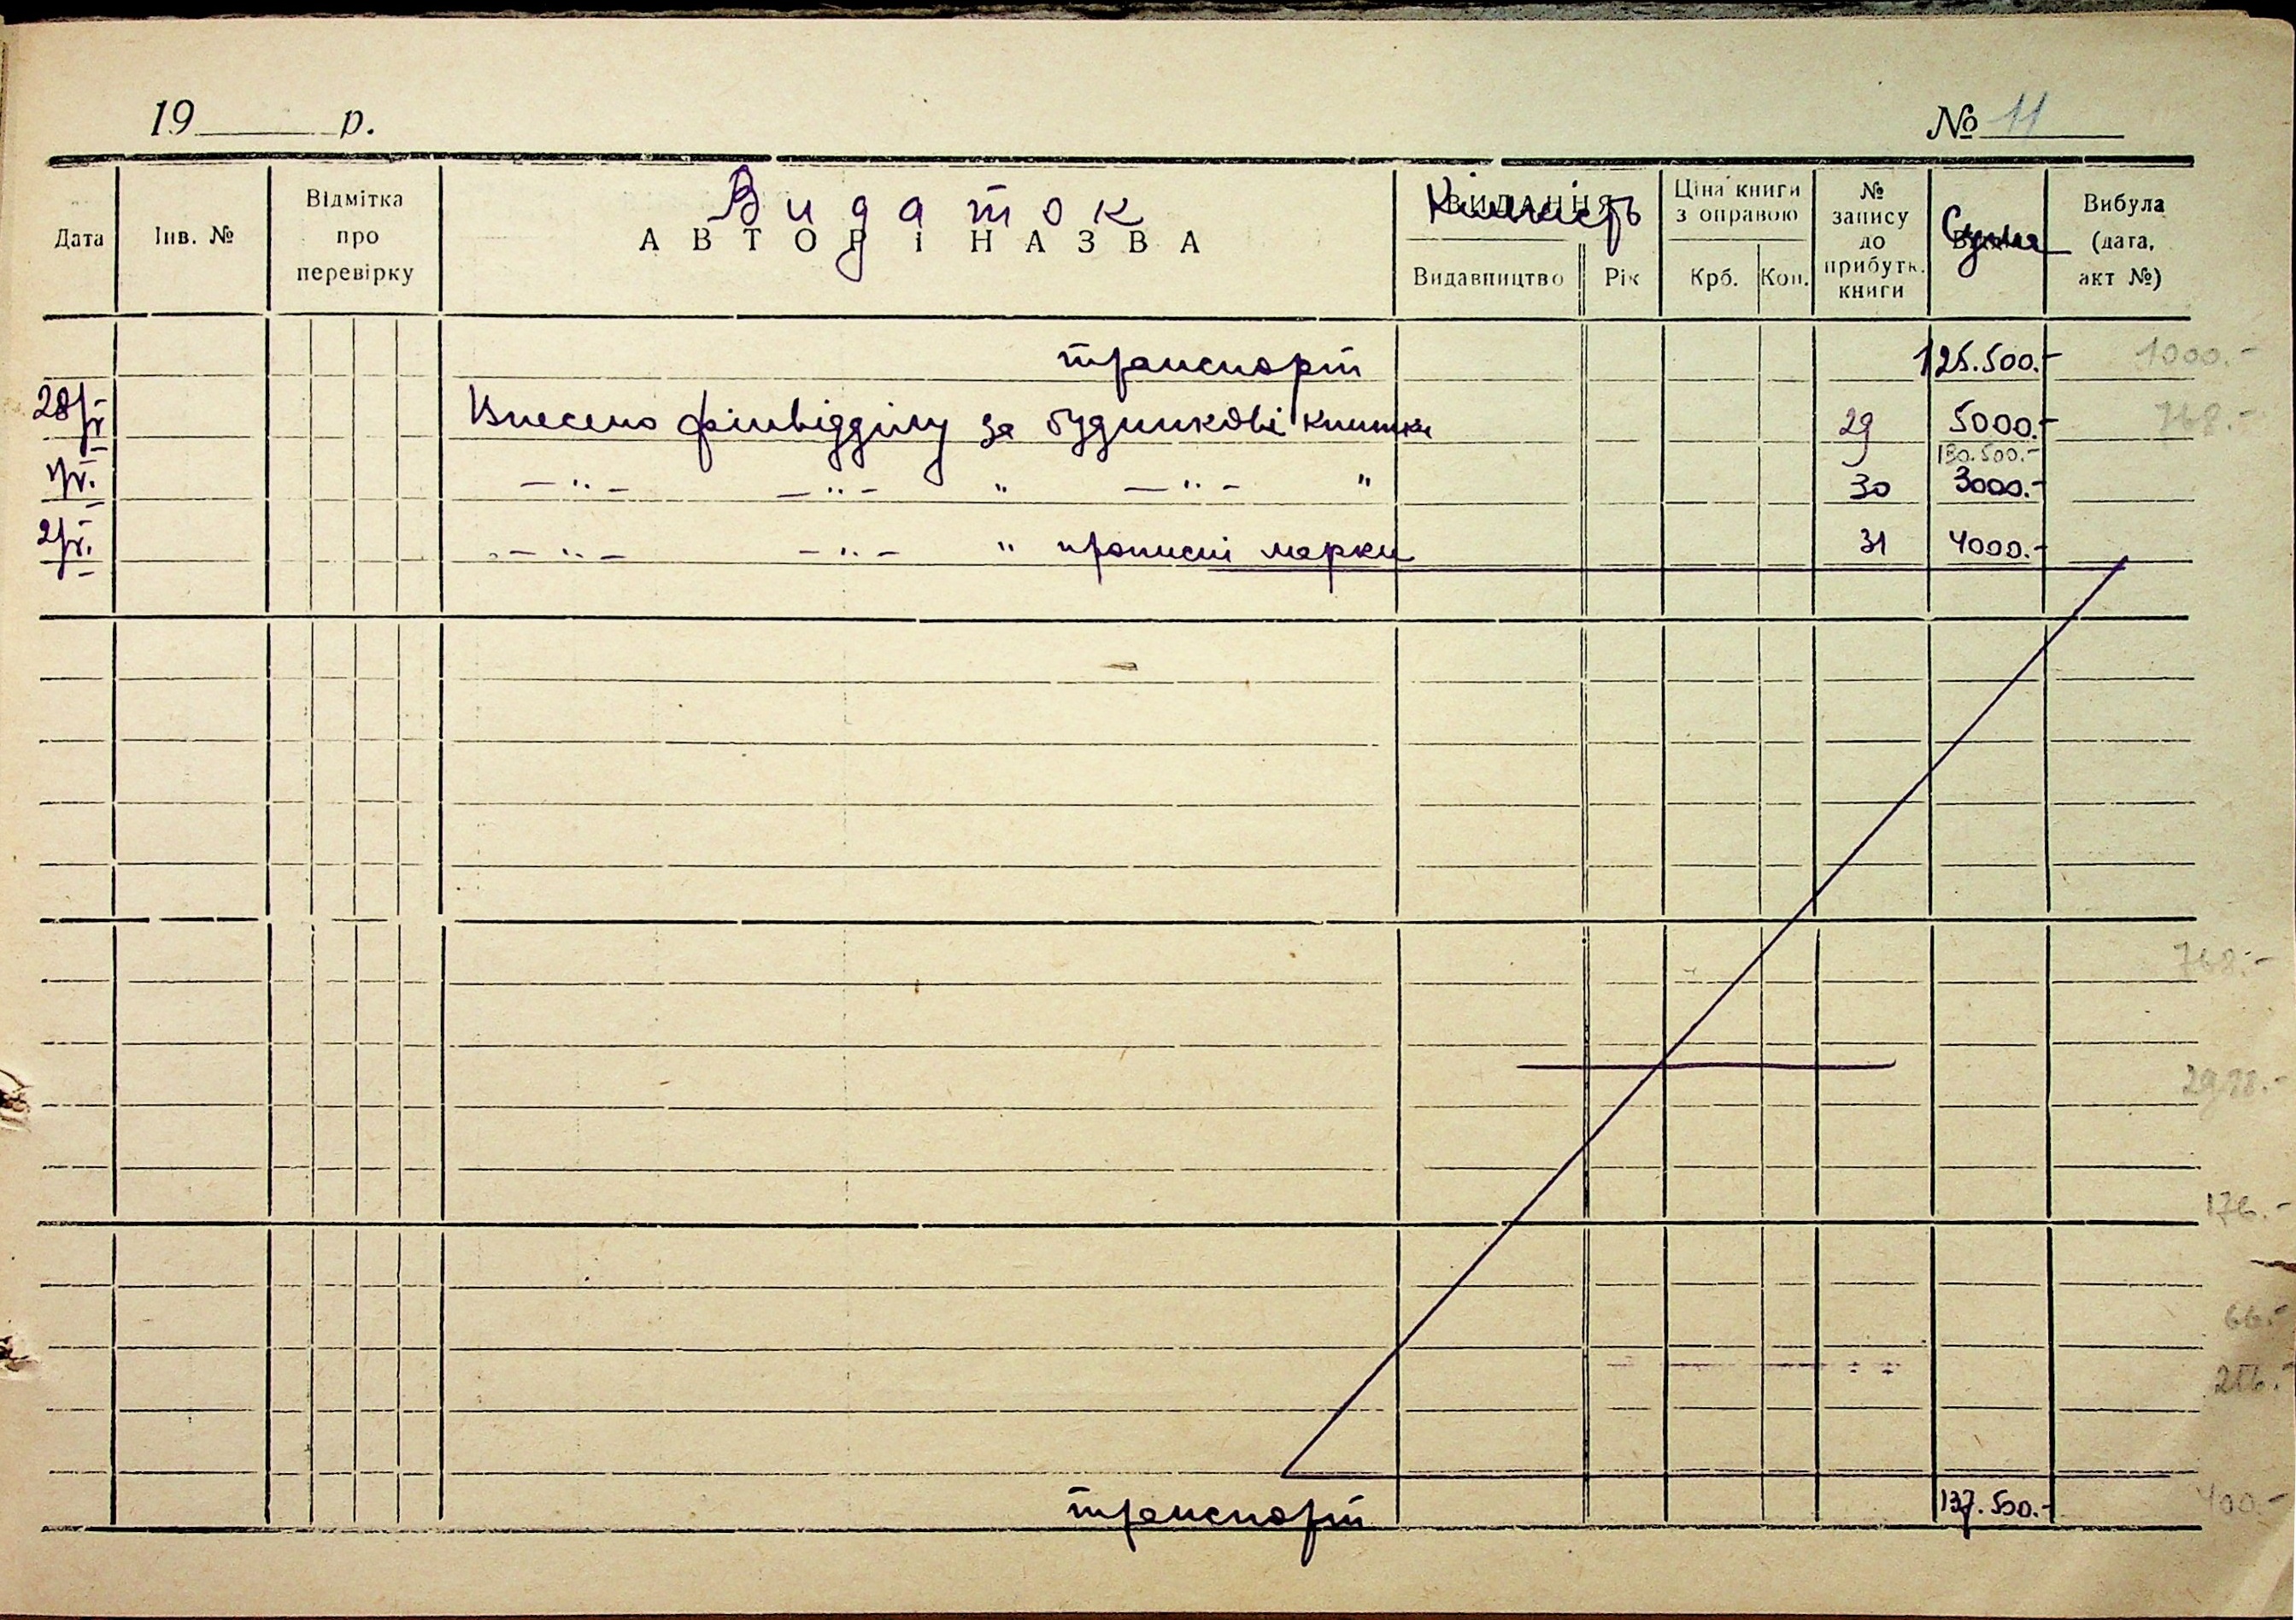 19 р. № 11
Дата Інв. № Відмітка про перевірку Видаток АВТОР і НАЗВА Кількість ВИДАННЯ Видавництво Рік Ціна книги з оправою Крб. Коп. № запису до прибутк. книги Сума Вибула (дата, акт №)
транспорт 125.500.- 1000.-
28/IV Внесено фінвідділу за будинкові книжки 29 5000.- 768.-
130.500.-
1/V. -"- -"- " -"- " 30 3000.-
2/V. -"- -"- " прописні марки 31 4000.-
768.-
176.-
66.-
400.-
транспорт 137.500.-